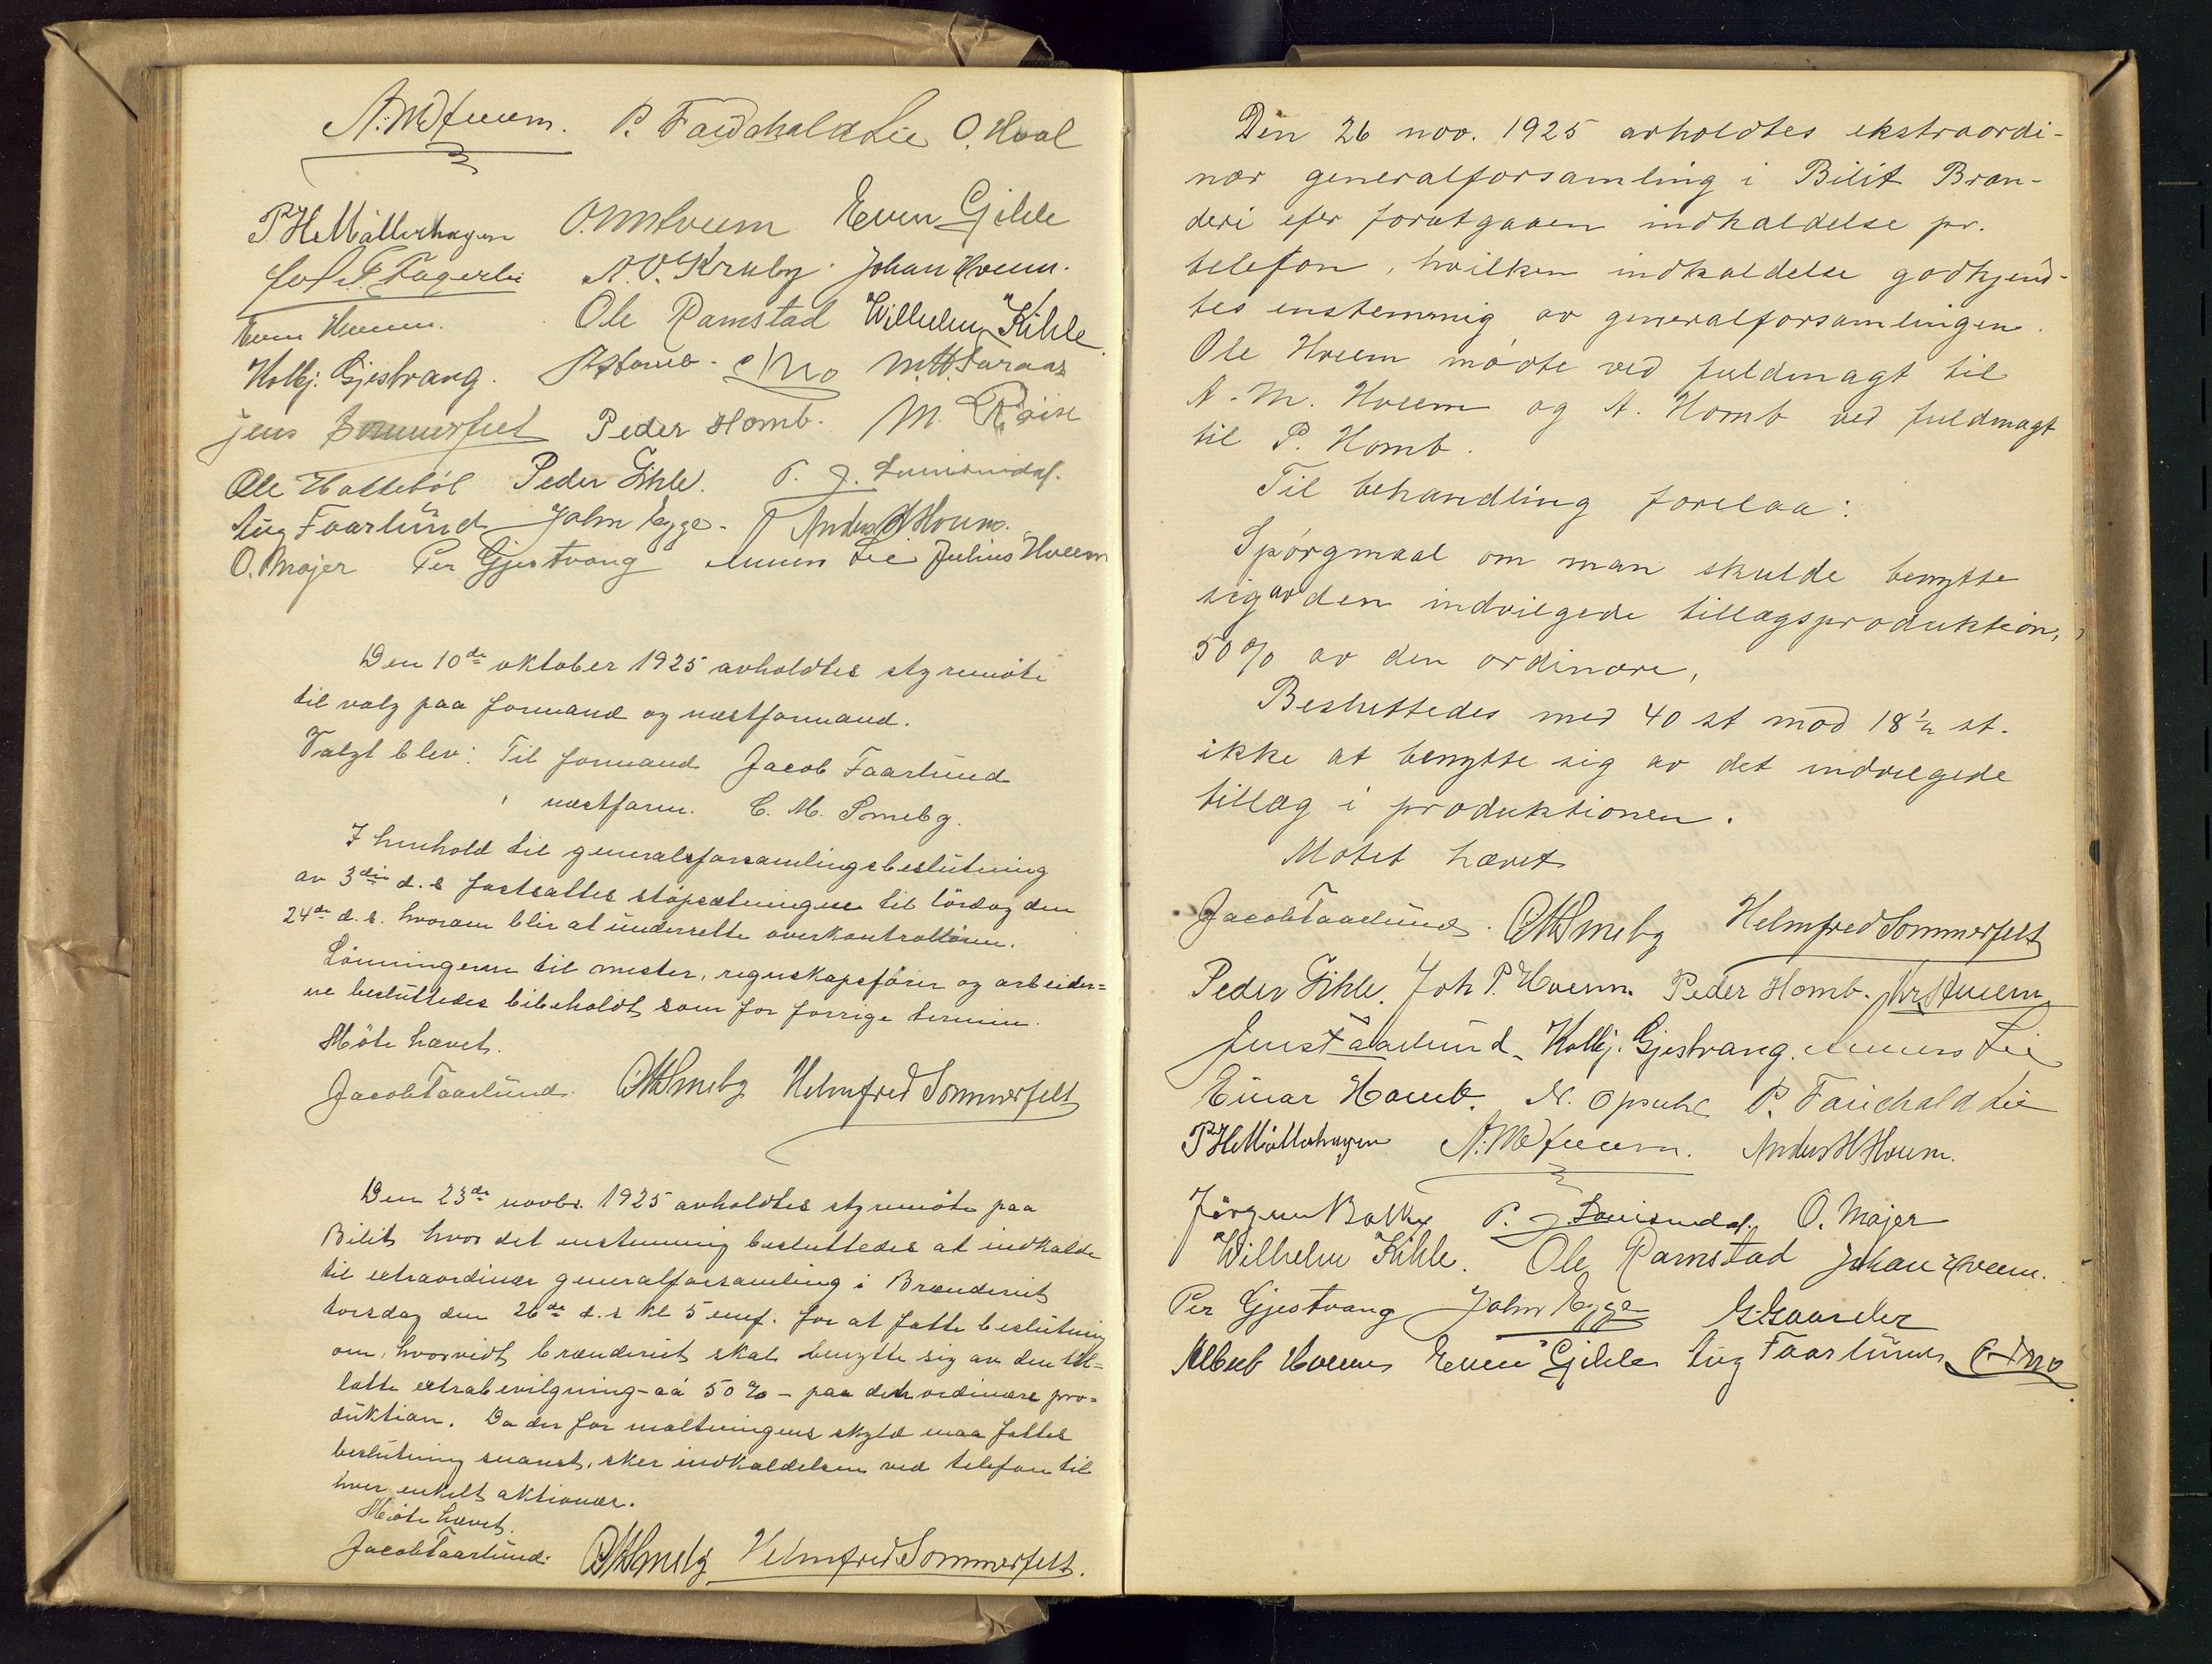 A. M. Hveem. P. Fauchald Lie O. Hval
P H Möllerhagen O. M. Hveem Even Gihle
Joh. P. Fagerli A. O. Kruby. Johan Hveem.
Even Hveem. Ole Ramstad Wilhelm Kihle.
Kolbj. Gjestvang. M. H. Faraas
Jens Sommerfelt Peder Homb. M. Røise
Ole Hattebøl Peder Gihle. P. J.
Aug Faarlund John Bygge. Anders H Hveem.
O. Majer Per Gjestvang Lie Julius Hveem
Den 10de oktober 1925 avholdtes styremöte
til valg paa formand og næstformand.
Valgt blev: Til formand Jacob Faarlund
" næstform. C. M. Smeby.
I henhold til generalforsamlingsbeslutning
av 3die d. s fastsattes støpsætningen til lördag den
24de d. s. hvorom blir at underrette overkontrollören.
Lönningerne til mester, regnskapsförer og arbeider=
ne besluttedes bibeholdt som for forrige termin.
Möte hævet.
Jacob Faarlund. C M Smeby Helmfred Sommerfelt
Den 23de novbr. 1925 avholdtes styremöte paa
Bilit hvor det enstemmig besluttedes at indkalde
til extraordinær generalforsamling i Brænderiet
torsdag den 26de d. s kl 5 emf. for at fatte beslutning
om, hvorvidt brænderiet skal benytte sig av den til=
latte extrabevilgning - aá 50% - paa den ordinære pro=
duktion. Da der for maltningens skyld maa fattes
beslutning snarest, sker indkaldelsen ved telefon til
hver enkelt aktionær.
Möte hævet.
Jacob Faarlund. C M Smeby Helmfred Sommerfelt.
Den 26 nov. 1925 avholdtes ekstraordi-
nær generalforsamling i Bilit Bræn-
deri efer forutgaaen indkaldelse pr.
telefon, hvilken indkaldelse godkjend-
tes enstemmig av generalforsamlingen.
Ole Hveem mødte ved fuldmagt til
A. M. Hveem og A. Homb ved fuldmagt
til P. Homb.
Til behandling forelaa:
Spørgmaal om man skulde benytte
sig av den indvilgede tillægsproduktion,
50% av den ordinære,
Besluttedes med 40 st mod 18½ st.
ikke at benytte sig av det indvilgede
tillæg i produktionen.
Møtet hævet
Jacob Faarlund. C M Smeby Helmfred Sommerfelt
Peder Gihle. Joh P. Hveem. Peder Homb. Hveem
Jens Faarlund. Kolbj. Gjestvang. Lie
Einar Homb. N. Opsahl P. Fauchald Lie
P H Möllerhagen A. M. Hveem. Anders H Hveem.
Jörgen Balke P. J. O. Majer
Wilhelm Kihle. Ole Ramstad Johan Hveem.
Per Gjestvang John Bygge G. Gaarder
Albert Hveem Even Gihle Aug Faarlund